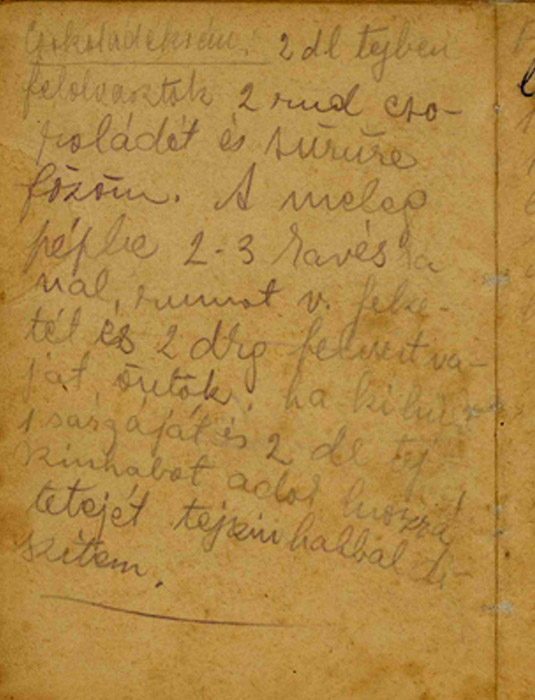 Csokoládékrém. 2 dl tejben
felolvasztok 2 rud cso-
koládét és sűrűre
főzöm. A meleg
pépbe 2-3 kávéska
nál, rumot v. feke-
tét és 2 dkg felvert va-
ját öntök, ha kihűl
1 sárgáját és 2 dl tej-
szinhabot adok hozzá
tetejét tejszin habbal di-
szitem.